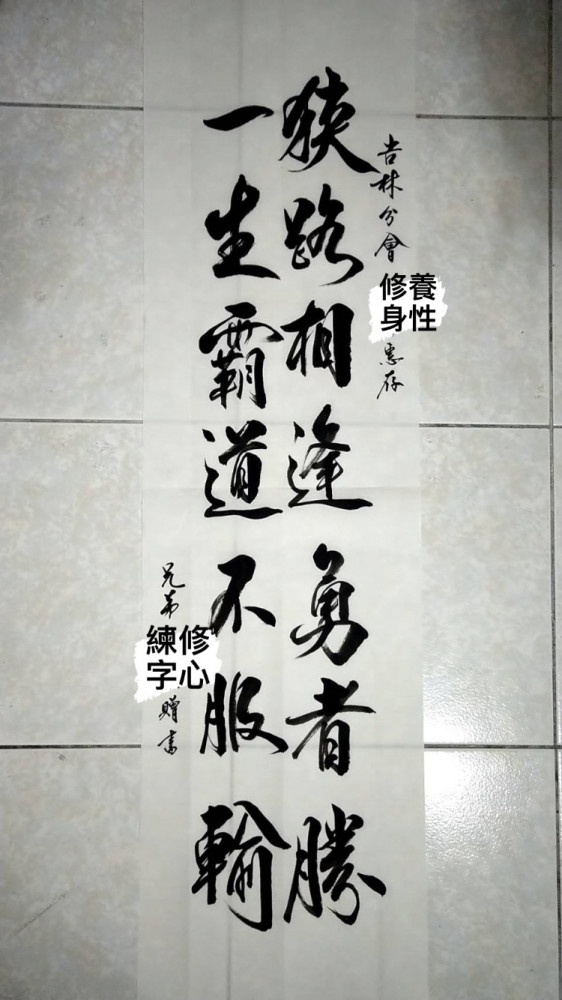 吉林分會
養性
修身
惠存
狹路相逢勇者勝
一生霸道不服輸
兄弟
修心
練字
贈書